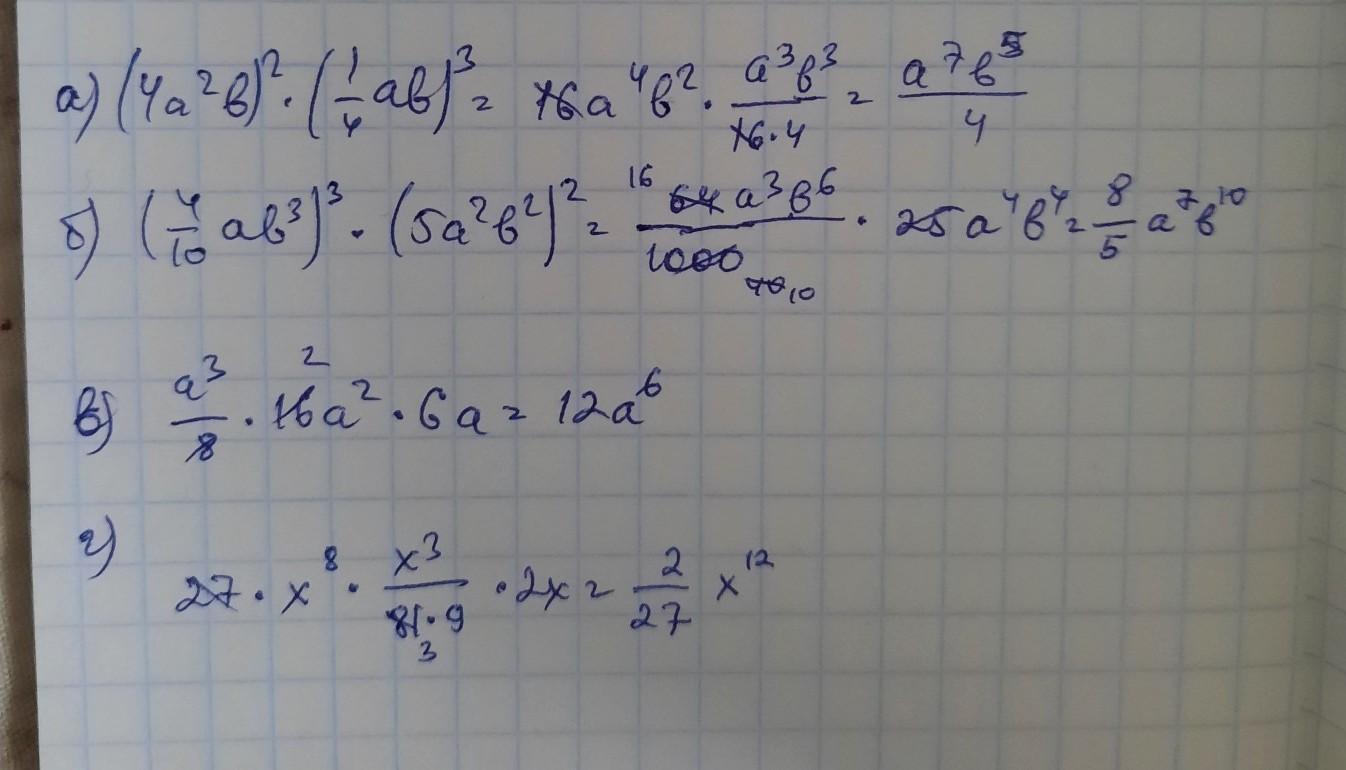 а) (4a²b)² · (1/4 ab)³ = 16a⁴b² · a³b³/16·4 = a⁷b⁵/4
б) (4/10 ab³)³ · (5a²b²)² = 16 64a³b⁶/1000 10 · 25a⁴b⁴ = 8/5 a⁷b¹⁰
в) a³/8 · 2 16a² · 6a = 12a⁶
г) 27 · x⁸ · x³/81·9 3 · 2x = 2/27 x¹²